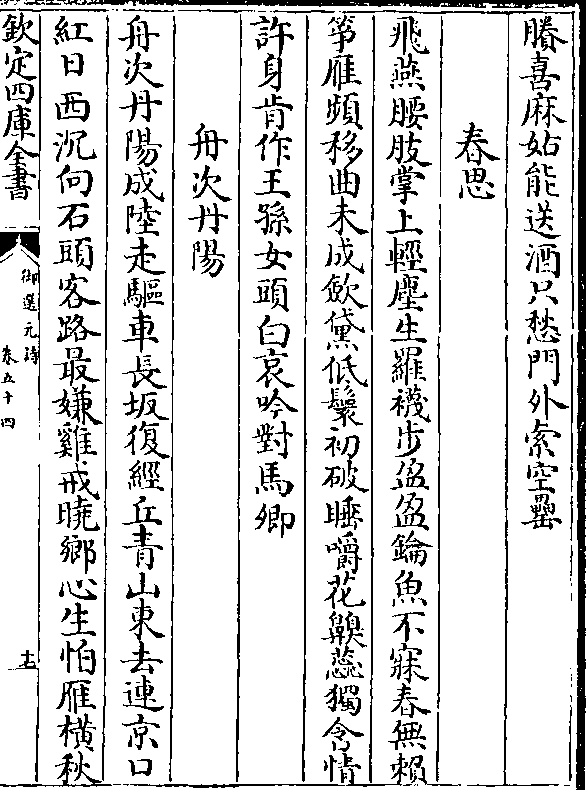 賸喜麻姑能送酒只愁門外索空罍
春思
飛燕腰肢掌上輕塵生羅襪步盈盈鑰魚不寐春無賴
筝雁頻移曲未成歛黛低鬟初破睡嚼花齅蕊獨含情
許身肯作王孫女頭白哀吟對馬卿
舟次丹陽
舟次丹陽成陸走驅車長坂復經丘青山東去連京口
紅日西沉向石頭客路最嫌雞戒曉鄉心生怕雁橫秋
欽定四庫全書
御選元詩
卷五十四
十三